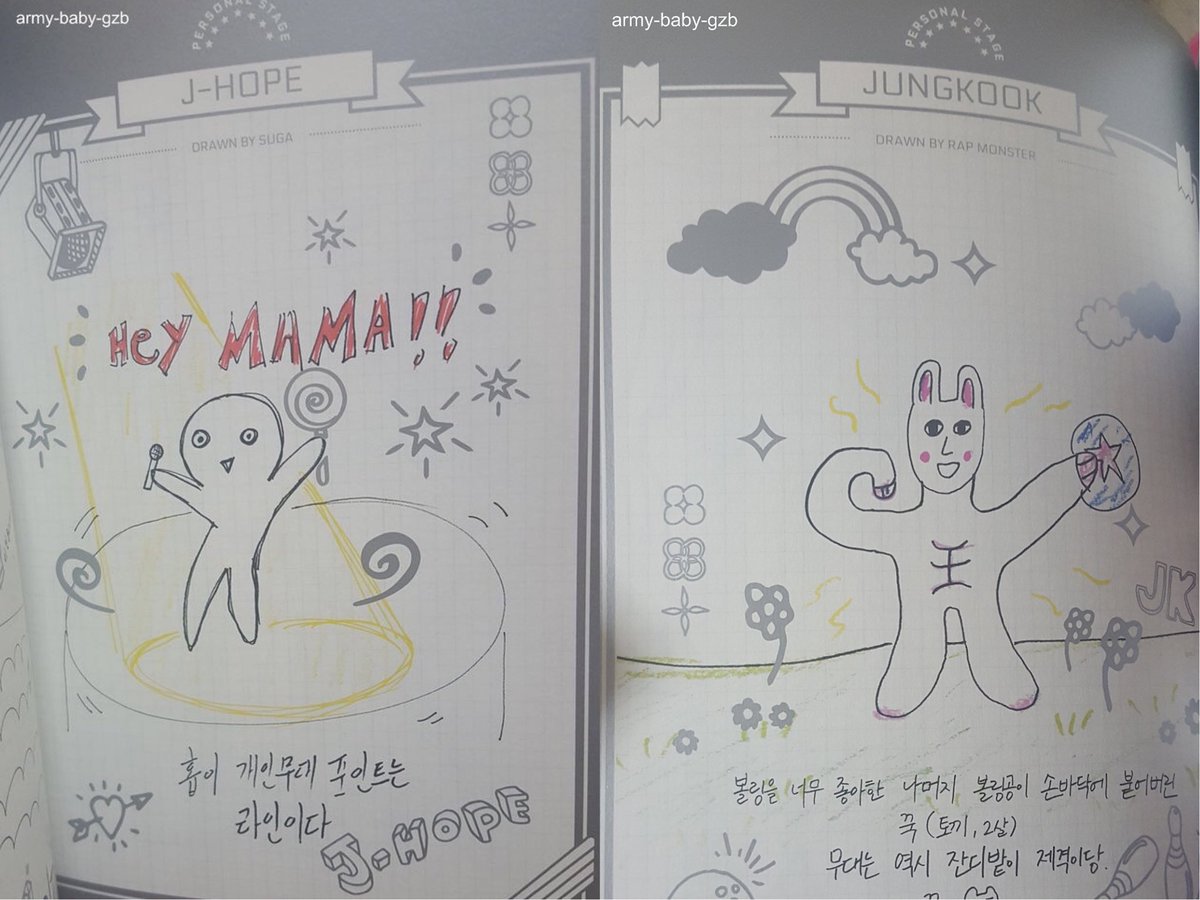 army-baby-gzb
PERSONAL STAGE
J-HOPE
DRAWN BY SUGA
HEY MAMA!!
홉이 개인무대 포인트는
라인이다
J-HOPE
army-baby-gzb
PERSONAL STAGE
JUNGKOOK
DRAWN BY RAP MONSTER
王
JK
볼링을 너무 좋아한 나머지 볼링공이 손바닥에 붙어버린
꾹 (토끼, 2살)
무대는 역시 잔디밭이 제격이당.